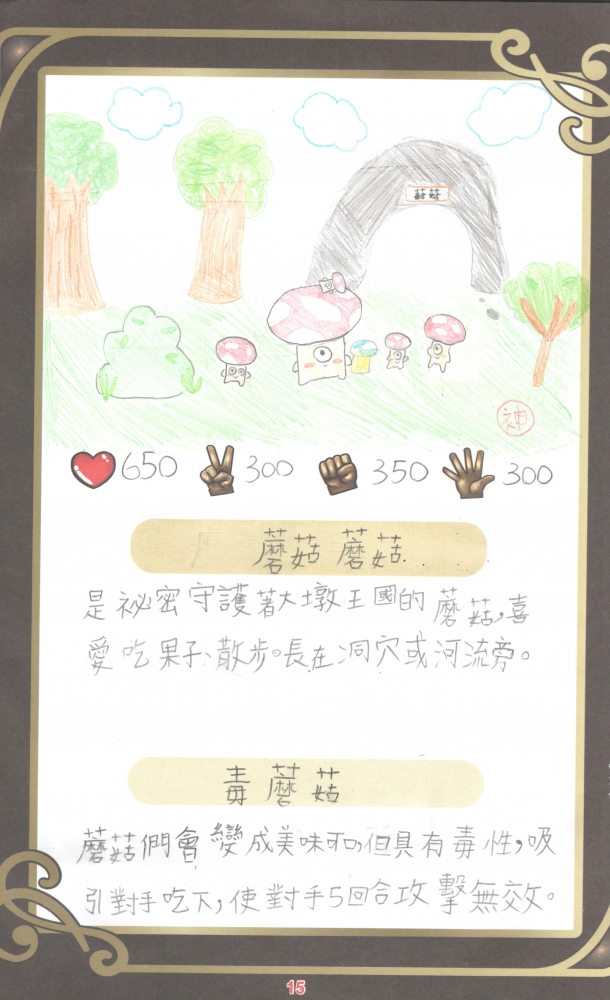 蘑菇
神
650 300 350 300
蘑菇蘑菇
是祕密守護著大墩王國的蘑菇,喜
愛吃果子、散步。長在洞穴或河流旁。
毒蘑菇
蘑菇們會變成美味可口,但具有毒性,吸
引對手吃下,使對手5回合攻擊無效。
15